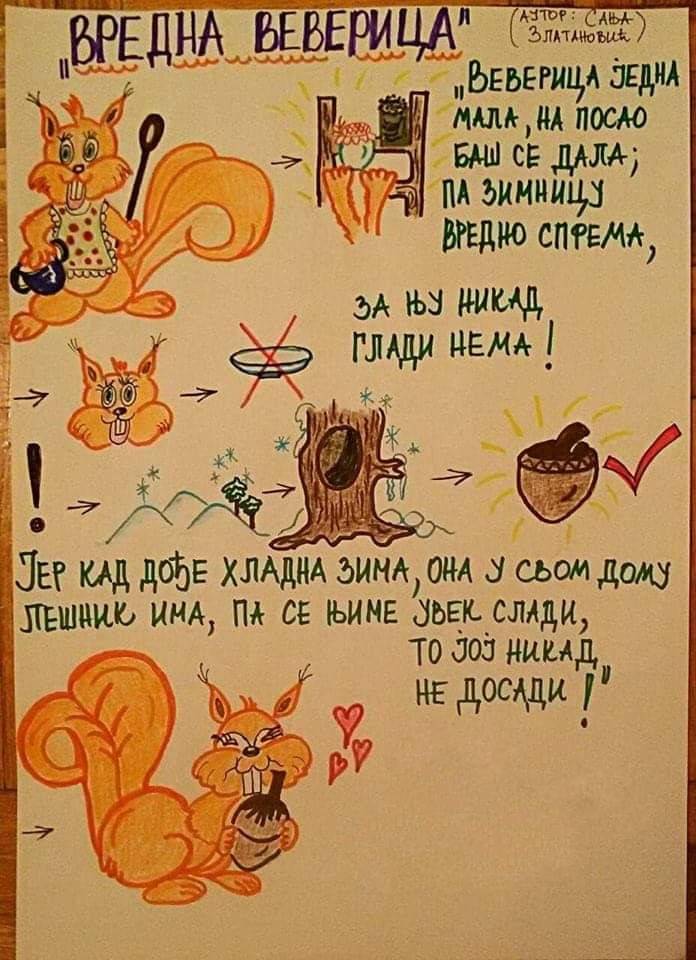 „ВРЕДНА ВЕВЕРИЦА"
(АУТОР: САЊА
ЗЛАТАНОВИЋ)
„ВЕВЕРИЦА ЈЕДНА
МАЛА, НА ПОСАО
БАШ СЕ ДАЛА;
ПА ЗИМНИЦУ
ВРЕДНО СПРЕМА,
ЗА ЊУ НИКАД
ГЛАДИ НЕМА!
ЈЕР КАД ДОЂЕ ХЛАДНА ЗИМА, ОНА У СВОМ ДОМУ
ЛЕШНИК ИМА, ПА СЕ ЊИМЕ УВЕК СЛАДИ,
ТО ЈОЈ НИКАД
НЕ ДОСАДИ!"